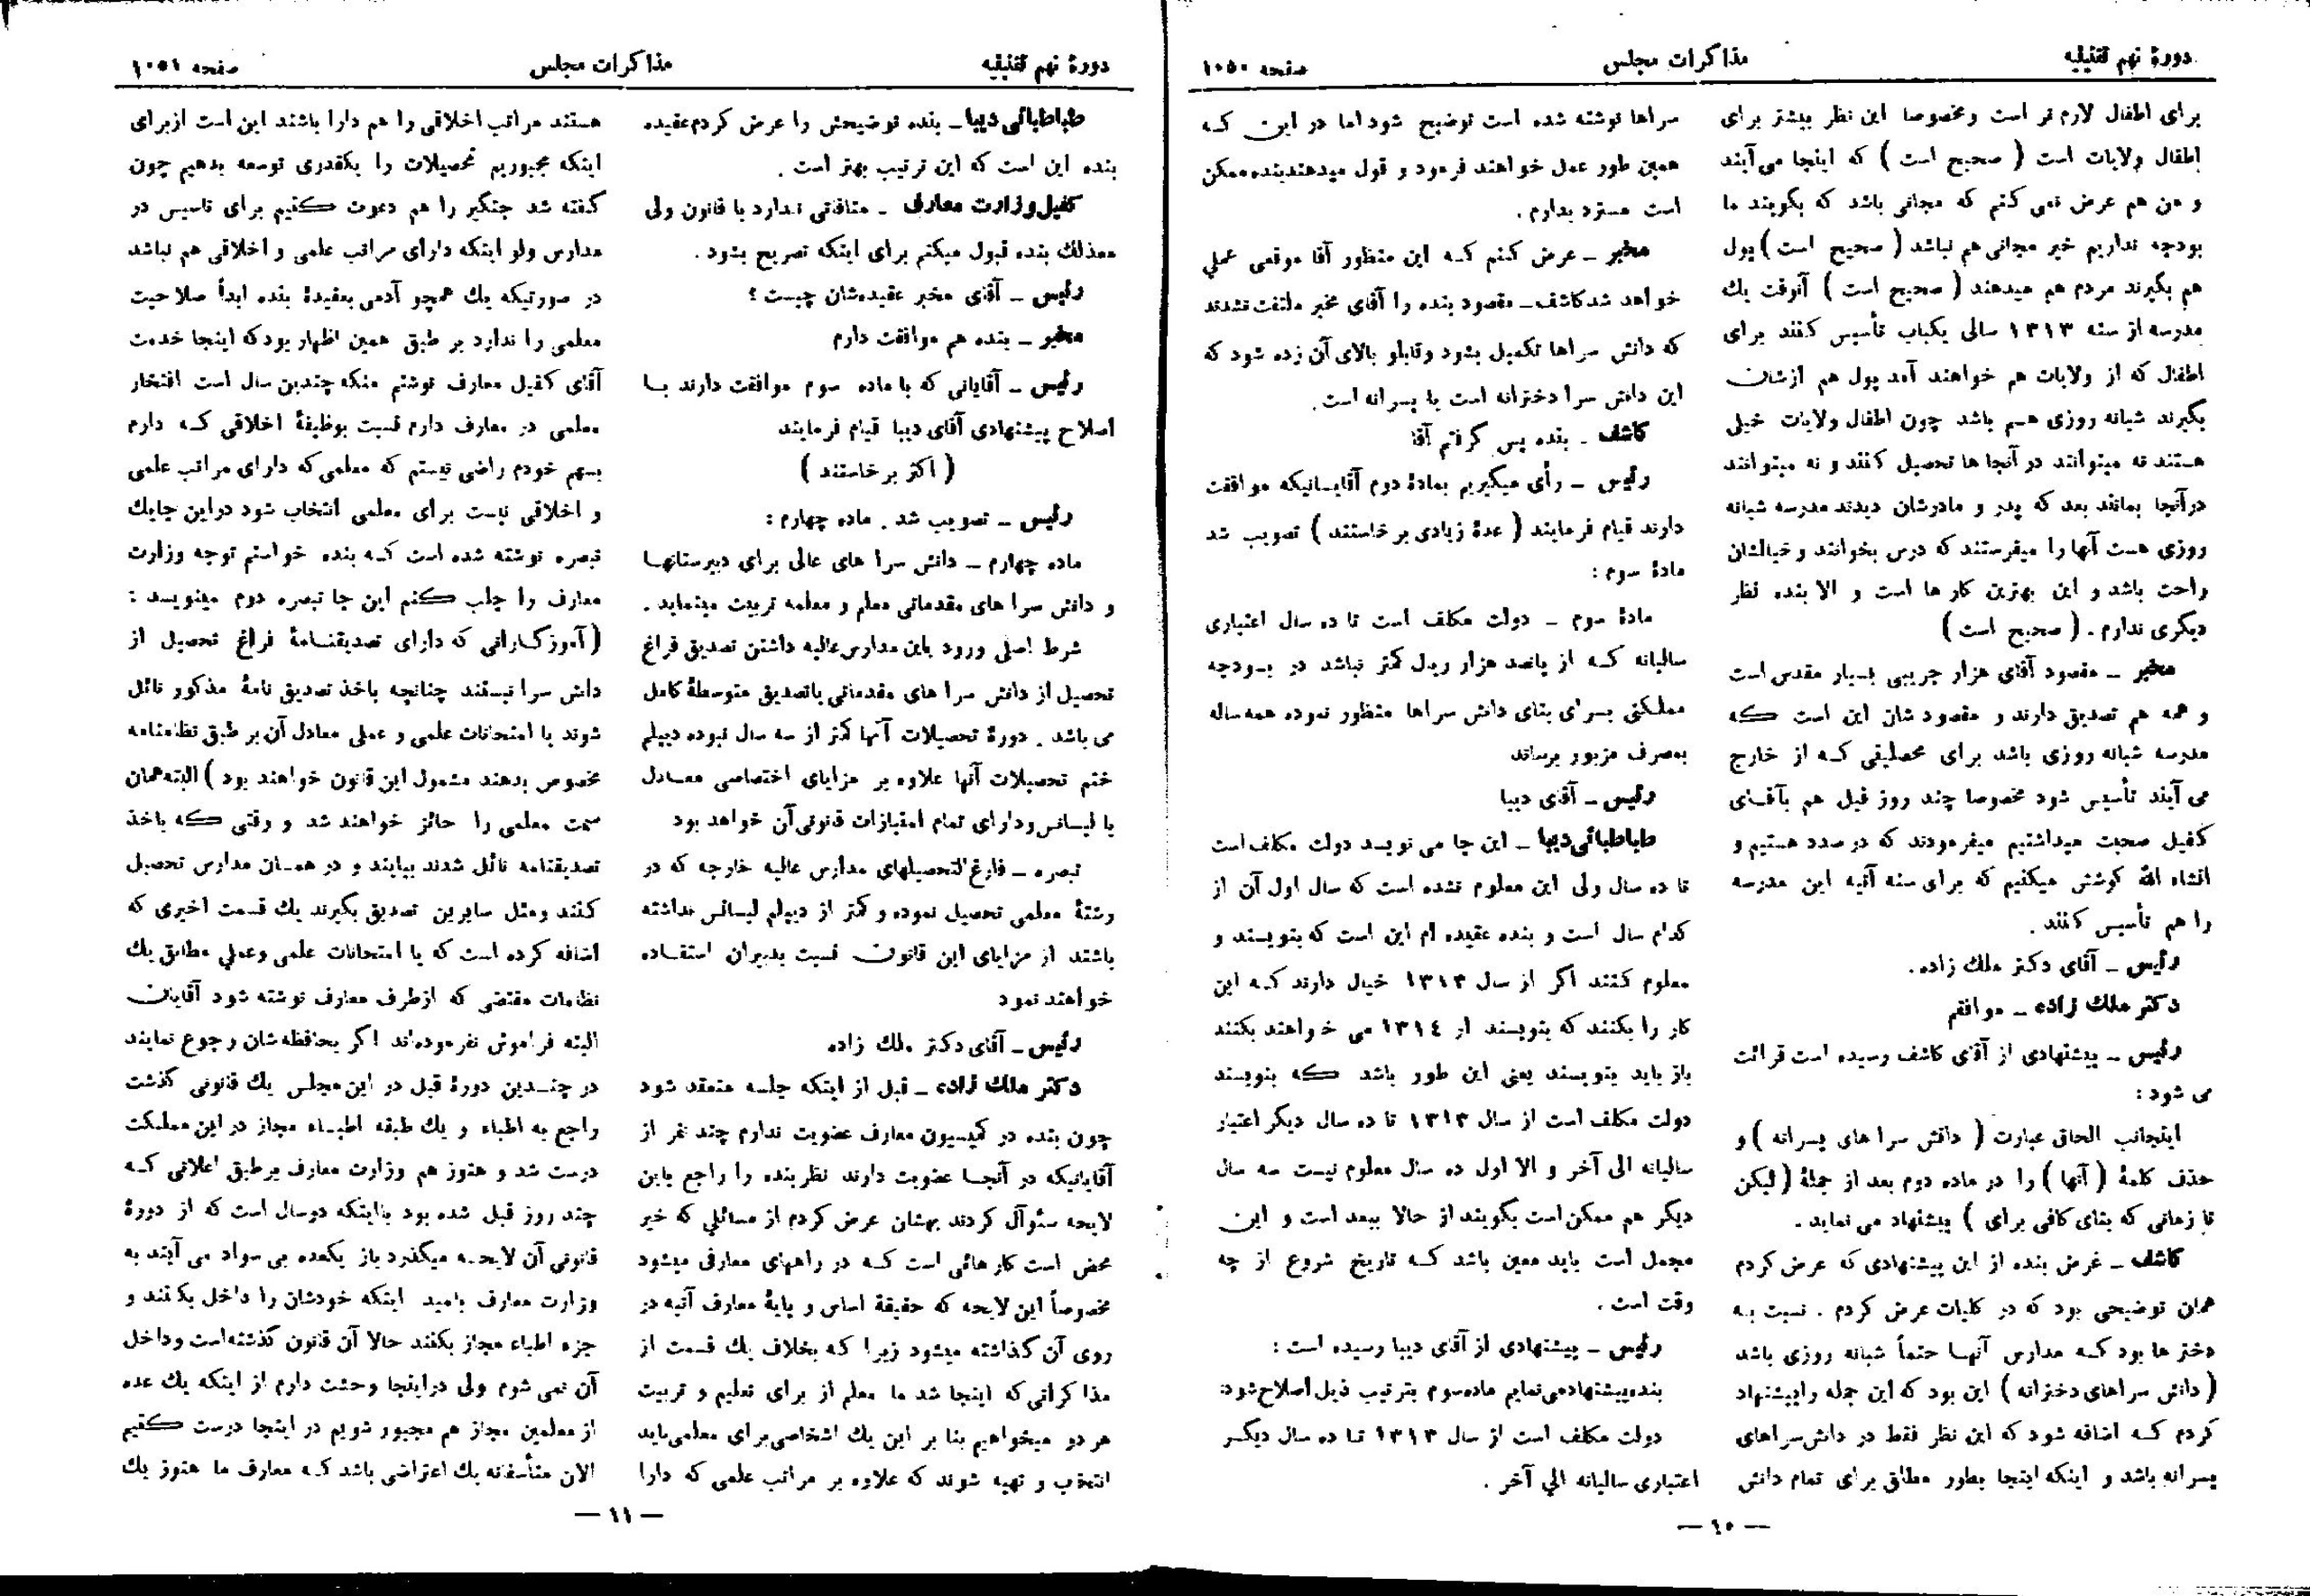 دورهٔ نهم تقنینیه
مذاکرات مجلس
صفحه ۱۰۵۰
برای اطفال لازم تر است ومخصوصا این نظر بیشتر برای
اطفال ولایات است ( صحیح است ) که اینجا می‌آیند
و من هم عرض نمی کنم که مجانی باشد که بگویند ما
بودجه نداریم خیر مجانی هم نباشد ( صحیح است ) پول
هم بگیرند مردم هم میدهند ( صحیح است ) آنوقت یك
مدرسه از سنه ۱۳۱۳ سالی یکباب تأسیس کنند برای
اطفال که از ولایات هم خواهند آمد پول هم ازشان
بگیرند شبانه روزی هم باشد چون اطفال ولایات خیلی
هستند نه میتوانند در آنجا ها تحصیل کنند و نه میتوانند
درآنجا بمانند بعد که پدر و مادرشان دیدند مدرسه شبانه
روزی هست آنها را میفرستند که درس بخوانند و خیالشان
راحت باشد و این بهترین کار ها است و الا بنده نظر
دیگری ندارم . ( صحیح است )
مخبر ـ مقصود آقای هزار جریبی بسیار مقدس است
و همه هم تصدیق دارند و مقصودشان این است که
مدرسه شبانه روزی باشد برای محصلینی که از خارج
می آیند تأسیس شود مخصوصا چند روز قبل هم بآقای
کفیل صحبت میداشتیم میفرمودند که در صدد هستیم و
انشاء الله کوشش میکنیم که برای سنه آتیه این مدرسه
را هم تأسیس کنند .
رئیس ـ آقای دکتر ملك زاده.
دکتر ملك زاده ـ موافقم
رئیس ـ پیشنهادی از آقای کاشف رسیده است قرائت
می شود :
اینجانب الحاق عبارت ( دانش سرا های پسرانه ) و
حذف کلمهٔ ( آنها ) را در ماده دوم بعد از جملهٔ ( لیکن
تا زمانی که بنای کافی برای ) پیشنهاد می نماید .
کاشف ـ غرض بنده از این پیشنهادی که عرض کردم
همان توضیحی بود که در کلیات عرض کردم . نسبت به
دختر ها بود که مدارس آنها حتماً شبانه روزی باشد
( دانش سراهای دخترانه ) این بود که این جمله را پیشنهاد
کردم که اضافه شود که این نظر فقط در دانش‌سراهای
پسرانه باشد و اینکه اینجا بطور مطلق برای تمام دانش
سراها نوشته شده است توضیح شود اما در این که
همین طور عمل خواهند فرمود و قول میدهند بنده ممکن
است مسترد بدارم .
مخبر ـ عرض کنم که این منظور آقا موقعی عملی
خواهد شد کاشف ـ مقصود بنده را آقای مخبر ملتفت نشدند
که دانش سراها تکمیل بشود وتابلو بالای آن زده شود که
این دانش سرا دخترانه است یا پسرانه است.
کاشف ـ بنده پس گرفتم آقا
رئیس ـ رأی میگیریم بمادهٔ دوم آقایانیکه موافقت
دارند قیام فرمایند ( عدهٔ زیادی برخاستند ) تصویب شد
مادهٔ سوم :
مادهٔ سوم ـ دولت مکلف است تا ده سال اعتباری
سالیانه که از پانصد هزار ریال کمتر نباشد در بودجه
مملکتی برای بنای دانش سراها منظور نموده همه‌ساله
بمصرف مزبور برساند
رئیس ـ آقای دیبا
طباطبائی دیبا ـ این جا می نویسد دولت مکلف است
تا ده سال ولی این معلوم نشده است که سال اول آن از
کدام سال است و بنده عقیده ام این است که بنویسند و
معلوم کنند اگر از سال ۱۳۱۳ خیال دارند که این
کار را بکنند که بنویسند از ۱۳۱۴ می خواهند بکنند
باز باید بنویسند یعنی این طور باشد که بنویسند
دولت مکلف است از سال ۱۳۱۳ تا ده سال دیگر اعتبار
سالیانه الی آخر و الا اول ده سال معلوم نیست سه سال
دیگر هم ممکن است بگویند از حالا ببعد است و این
مجمل است باید معین باشد که تاریخ شروع از چه
وقت است .
رئیس ـ پیشنهادی از آقای دیبا رسیده است :
بنده پیشنهاد می‌نمایم ماده سوم بترتیب ذیل اصلاح شود:
دولت مکلف است از سال ۱۳۱۳ تا ده سال دیگر
اعتباری سالیانه الی آخر .
— ۱۰ —
دورهٔ نهم تقنینیه
مذاکرات مجلس
صفحه ۱۰۵۱
طباطبائی دیبا ـ بنده توضیحش را عرض کردم عقیده
بنده این است که این ترتیب بهتر است .
کفیل وزارت معارف ـ منافاتی ندارد با قانون ولی
معذلك بنده قبول میکنم برای اینکه تصریح بشود .
رئیس ـ آقای مخبر عقیده‌شان چیست ؟
مخبر ـ بنده هم موافقت دارم
رئیس ـ آقایانی که با ماده سوم موافقت دارند با
اصلاح پیشنهادی آقای دیبا قیام فرمایند
( اکثر برخاستند )
رئیس ـ تصویب شد . ماده چهارم :
ماده چهارم ـ دانش سرا های عالی برای دبیرستانها
و دانش سرا های مقدماتی معلم و معلمه تربیت مینماید .
شرط اصلی ورود باین مدارس عالیه داشتن تصدیق فراغ
تحصیل از دانش سرا های مقدماتی یا تصدیق متوسطهٔ کامل
می باشد . دورهٔ تحصیلات آنها کمتر از سه سال نبوده دیپلم
ختم تحصیلات آنها علاوه بر مزایای اختصاصی معادل
با لیسانس ودارای تمام امتیازات قانونی آن خواهد بود
تبصره ـ فارغ‌التحصیلهای مدارس عالیه خارجه که در
رشتهٔ معلمی تحصیل نموده و کمتر از دیپلم لیسانس نداشته
باشند از مزایای این قانون نسبت بدبیران استفاده
خواهند نمود
رئیس ـ آقای دکتر ملك زاده
دکتر ملك زاده ـ قبل از اینکه جلسه منعقد شود
چون بنده در کمیسیون معارف عضویت ندارم چند نفر از
آقایانیکه در آنجا عضویت دارند نظر بنده را راجع باین
لایحه سئوآل کردند بهشان عرض کردم از مسائلی که خیر
محض است کار هائی است که در راههای معارفی میشود
مخصوصاً این لایحه که حقیقة اساس و پایهٔ معارف آتیه در
روی آن گذاشته میشود زیرا که بخلاف یك قسمت از
مذاکراتی که اینجا شد ما معلم از برای تعلیم و تربیت
هر دو میخواهیم بنا بر این یك اشخاصی برای معلمی باید
انتخاب و تهیه شوند که علاوه بر مراتب علمی که دارا
هستند مراتب اخلاقی را هم دارا باشند این است از برای
اینکه مجبوریم تحصیلات را یکقدری توسعه بدهیم چون
گفته شد جنگیر را هم دعوت کنیم برای تاسیس در
مدارس ولو اینکه دارای مراتب علمی و اخلاقی هم نباشد
در صورتیکه یك همچو آدمی بعقیدهٔ بنده ابداً صلاحیت
معلمی را ندارد بر طبق همین اظهار بود که اینجا خدمت
آقای کفیل معارف نوشتم منکه چندین سال است افتخار
معلمی در معارف دارم نسبت بوظیفهٔ اخلاقی که دارم
بسهم خودم راضی نیستم که معلمی که دارای مراتب علمی
و اخلاقی نیست برای معلمی انتخاب شود دراین جا یك
تبصره نوشته شده است که بنده خواستم توجه وزارت
معارف را جلب کنم این جا تبصره دوم مینویسد :
( آموزگارانی که دارای تصدیقنامهٔ فراغ تحصیل از
دانش سرا نیستند چنانچه باخذ تصدیق نامهٔ مذکور نائل
شوند یا امتحانات علمی و عملی معادل آن بر طبق نظامنامه
مخصوص بدهند مشمول این قانون خواهند بود ) البته همان
سمت معلمی را حائز خواهند شد و وقتی که باخذ
تصدیقنامه نائل شدند بیایند و در همان مدارس تحصیل
کنند ومثل سایرین تصدیق بگیرند یك قسمت اخیری که
اضافه کرده است که یا امتحانات علمی وعملی مطابق یك
نظامات مقتضی که ازطرف معارف نوشته شود آقایان
البته فراموش نفرموده‌اند اگر بحافظه‌شان رجوع نمایند
در چندین دورهٔ قبل در این مجلس یك قانونی گذشت
راجع به اطباء و یك طبقه اطباء مجاز در این مملکت
درست شد و هنوز هم وزارت معارف برطبق اعلانی که
چند روز قبل شده بود بااینکه دوسال است که از دورهٔ
قانونی آن لایحه میگذرد باز یکعده بی سواد می آیند به
وزارت معارف بامید اینکه خودشان را داخل بکنند و
جزء اطباء مجاز بکنند حالا آن قانون گذشته است وداخل
آن نمی شوم ولی دراینجا وحشت دارم از اینکه یك عده
از معلمین مجاز هم مجبور شویم در اینجا درست کنیم
الان متأسفانه یك اعتراضی باشد که معارف ما هنوز یك
— ۱۱ —